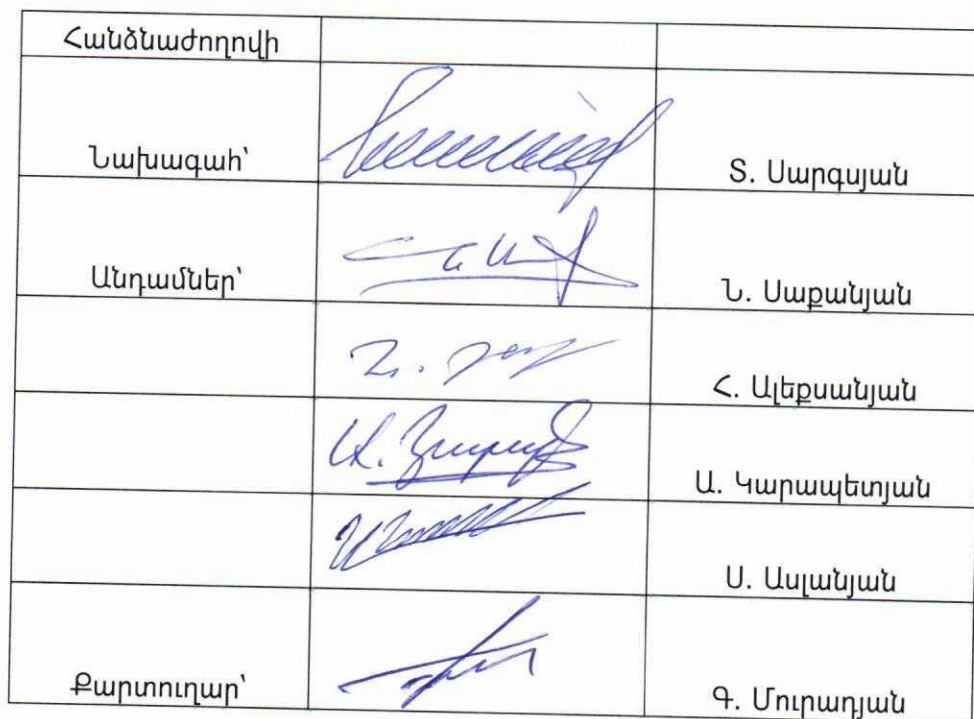 Հանձնաժողովի
Նախագահ՝ Տ. Սարգսյան
Անդամներ՝ Ն. Սաքանյան
Հ. Ալեքսանյան
Ա. Կարապետյան
Ս. Ասլանյան
Քարտուղար՝ Գ. Մուրադյան